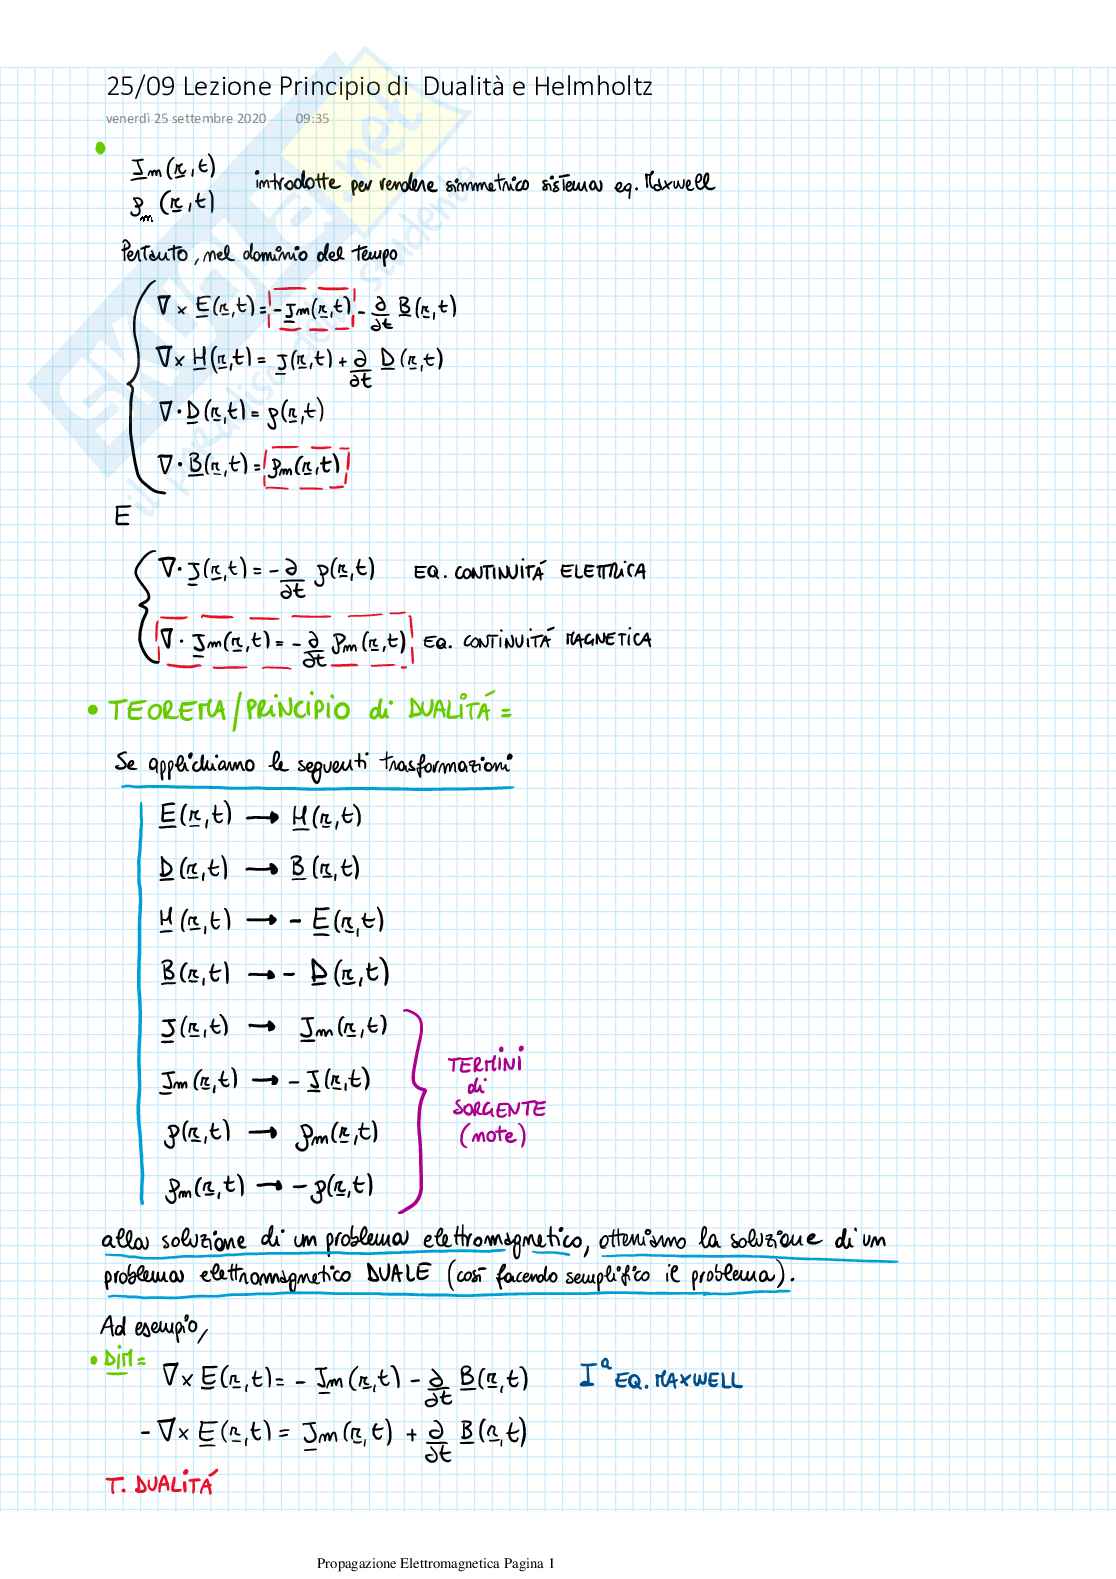 25/09 Lezione Principio di Dualità e Helmholtz
venerdì 25 settembre 2020 09:35
• J̲m(r̲,t)
ρm(r̲,t) introdotte per rendere simmetrico sistema eq. Maxwell
Pertanto, nel dominio del tempo
∇ × E̲(r̲,t) = -J̲m(r̲,t) - ∂/∂t B̲(r̲,t)
∇ × H̲(r̲,t) = J̲(r̲,t) + ∂/∂t D̲(r̲,t)
∇ · D̲(r̲,t) = ρ(r̲,t)
∇ · B̲(r̲,t) = ρm(r̲,t)
E
∇ · J̲(r̲,t) = - ∂/∂t ρ(r̲,t) EQ. CONTINUITÁ ELETTRICA
∇ · J̲m(r̲,t) = - ∂/∂t ρm(r̲,t) EQ. CONTINUITÁ MAGNETICA
• TEOREMA/PRINCIPIO di DUALITÁ =
Se applichiamo le seguenti trasformazioni
E̲(r̲,t) → H̲(r̲,t)
D̲(r̲,t) → B̲(r̲,t)
H̲(r̲,t) → - E̲(r̲,t)
B̲(r̲,t) → - D̲(r̲,t)
J̲(r̲,t) → J̲m(r̲,t)
J̲m(r̲,t) → - J̲(r̲,t)
ρ(r̲,t) → ρm(r̲,t)
ρm(r̲,t) → - ρ(r̲,t)
TERMINI
di
SORGENTE
(note)
alla soluzione di un problema elettromagnetico, otteniamo la soluzione di un
problema elettromagnetico DUALE (così facendo semplifico il problema).
Ad esempio,
• DIM = ∇ × E̲(r̲,t) = - J̲m(r̲,t) - ∂/∂t B̲(r̲,t) Iª EQ. MAXWELL
- ∇ × E̲(r̲,t) = J̲m(r̲,t) + ∂/∂t B̲(r̲,t)
T. DUALITÁ
Propagazione Elettromagnetica Pagina 1